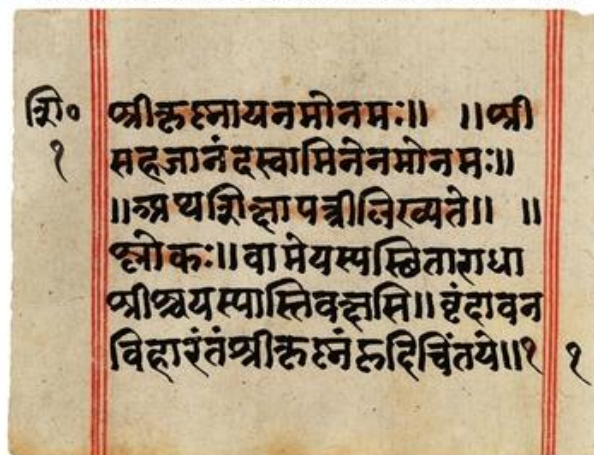 शि० श्रीकृष्नायनमोनमः॥ ॥श्री
१ सहजानंदस्वामिनेनमोनमः॥
॥अथशिक्षापत्रीलिख्यते॥ ॥
श्लोकः॥वामेयस्यस्थिताराधा
श्रीश्चयस्यास्तिवक्षसि॥वृंदावन
विहारंतंश्रीकृष्नंहृदिचिंतये॥१ १